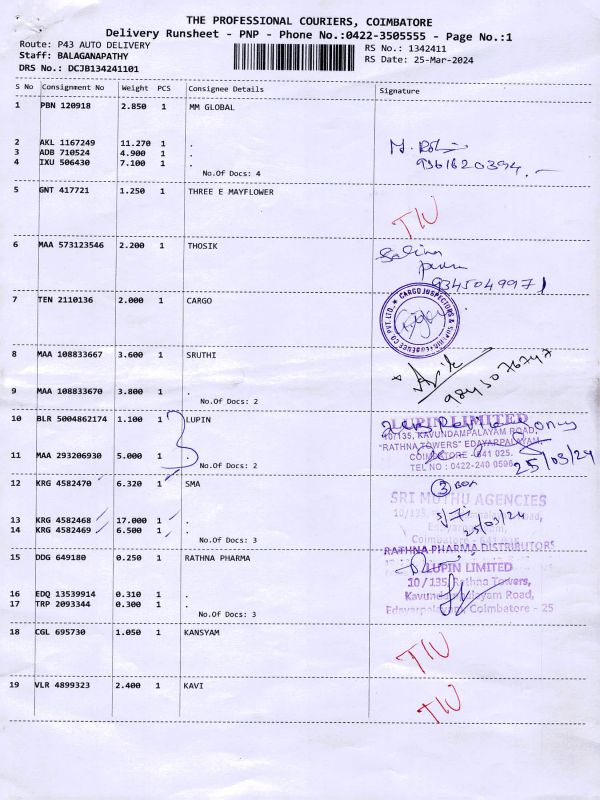 THE PROFESSIONAL COURIERS, COIMBATORE
Delivery Runsheet - PNP - Phone No.:0422-3505555 - Page No.:1
Route: P43 AUTO DELIVERY RS No.: 1342411
Staff: BALAGANAPATHY RS Date: 25-Mar-2024
DRS No.: DCJB134241101
S No Consignment No Weight PCS Consignee Details Signature
1 PBN 120918 2.850 1 MM GLOBAL
2 AKL 1167249 11.270 1 .
3 ADB 710524 4.900 1 .
4 IXU 506430 7.100 1 .
9361620394
No.Of Docs: 4
5 GNT 417721 1.250 1 THREE E MAYFLOWER
6 MAA 573123546 2.200 1 THOSIK
9345049971
7 TEN 2110136 2.000 1 CARGO
8 MAA 108833667 3.600 1 SRUTHI
9845076747
9 MAA 108833670 3.800 1 .
No.Of Docs: 2
10 BLR 5004862174 1.100 1 LUPIN
LUPIN LIMITED
10/135, KAVUNDAMPALAYAM ROAD,
"RATHNA TOWERS" EDAYARPALAYAM,
COIMBATORE - 641 025.
TEL NO : 0422-240 0596
25/03/24
11 MAA 293206930 5.000 1 .
No.Of Docs: 2
12 KRG 4582470 6.320 1 SMA
3 BOX
SRI MUTHU AGENCIES
25/03/24
13 KRG 4582468 17.000 1 .
14 KRG 4582469 6.500 1 .
No.Of Docs: 3
RATHNA PHARMA DISTRIBUTORS
15 DDG 649180 0.250 1 RATHNA PHARMA
LUPIN LIMITED
10/135, Rathna Towers,
Kavundampalayam Road,
Edayarpalayam, Coimbatore - 25
16 EDQ 13539914 0.310 1 .
17 TRP 2093344 0.300 1 .
No.Of Docs: 3
18 CGL 695730 1.050 1 KANSYAM
19 VLR 4899323 2.400 1 KAVI